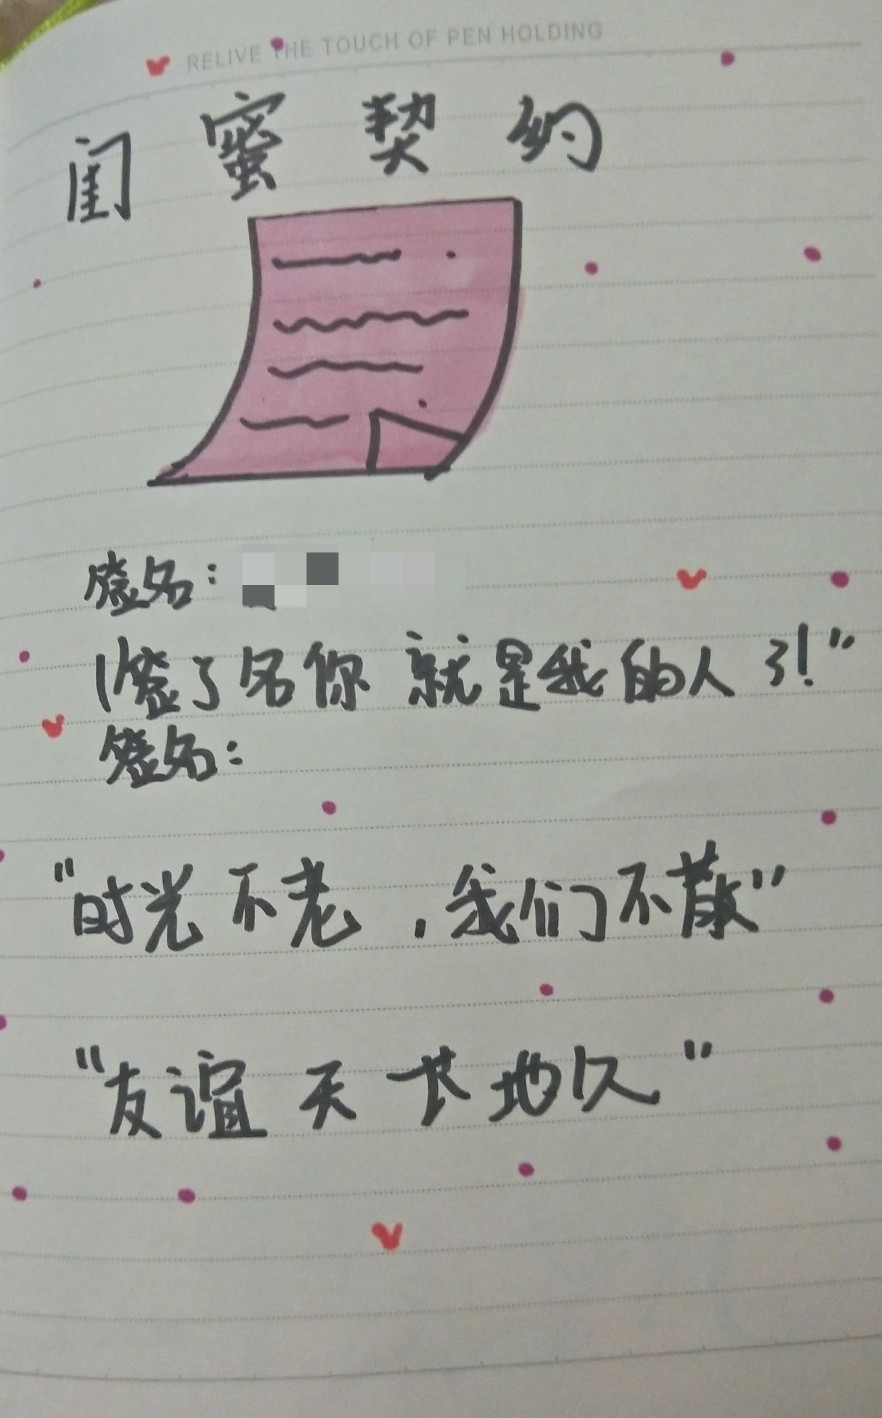 RELIVE THE TOUCH OF PEN HOLDING
闺蜜契约
签名:
"签了名你就是我的人了!"
签名:
"时光不老,我们不散"
"友谊天长地久"